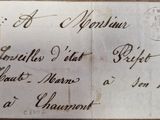 A Monsieur
Conseiller d'état Préfet
Haute Marne à son
à Chaumont